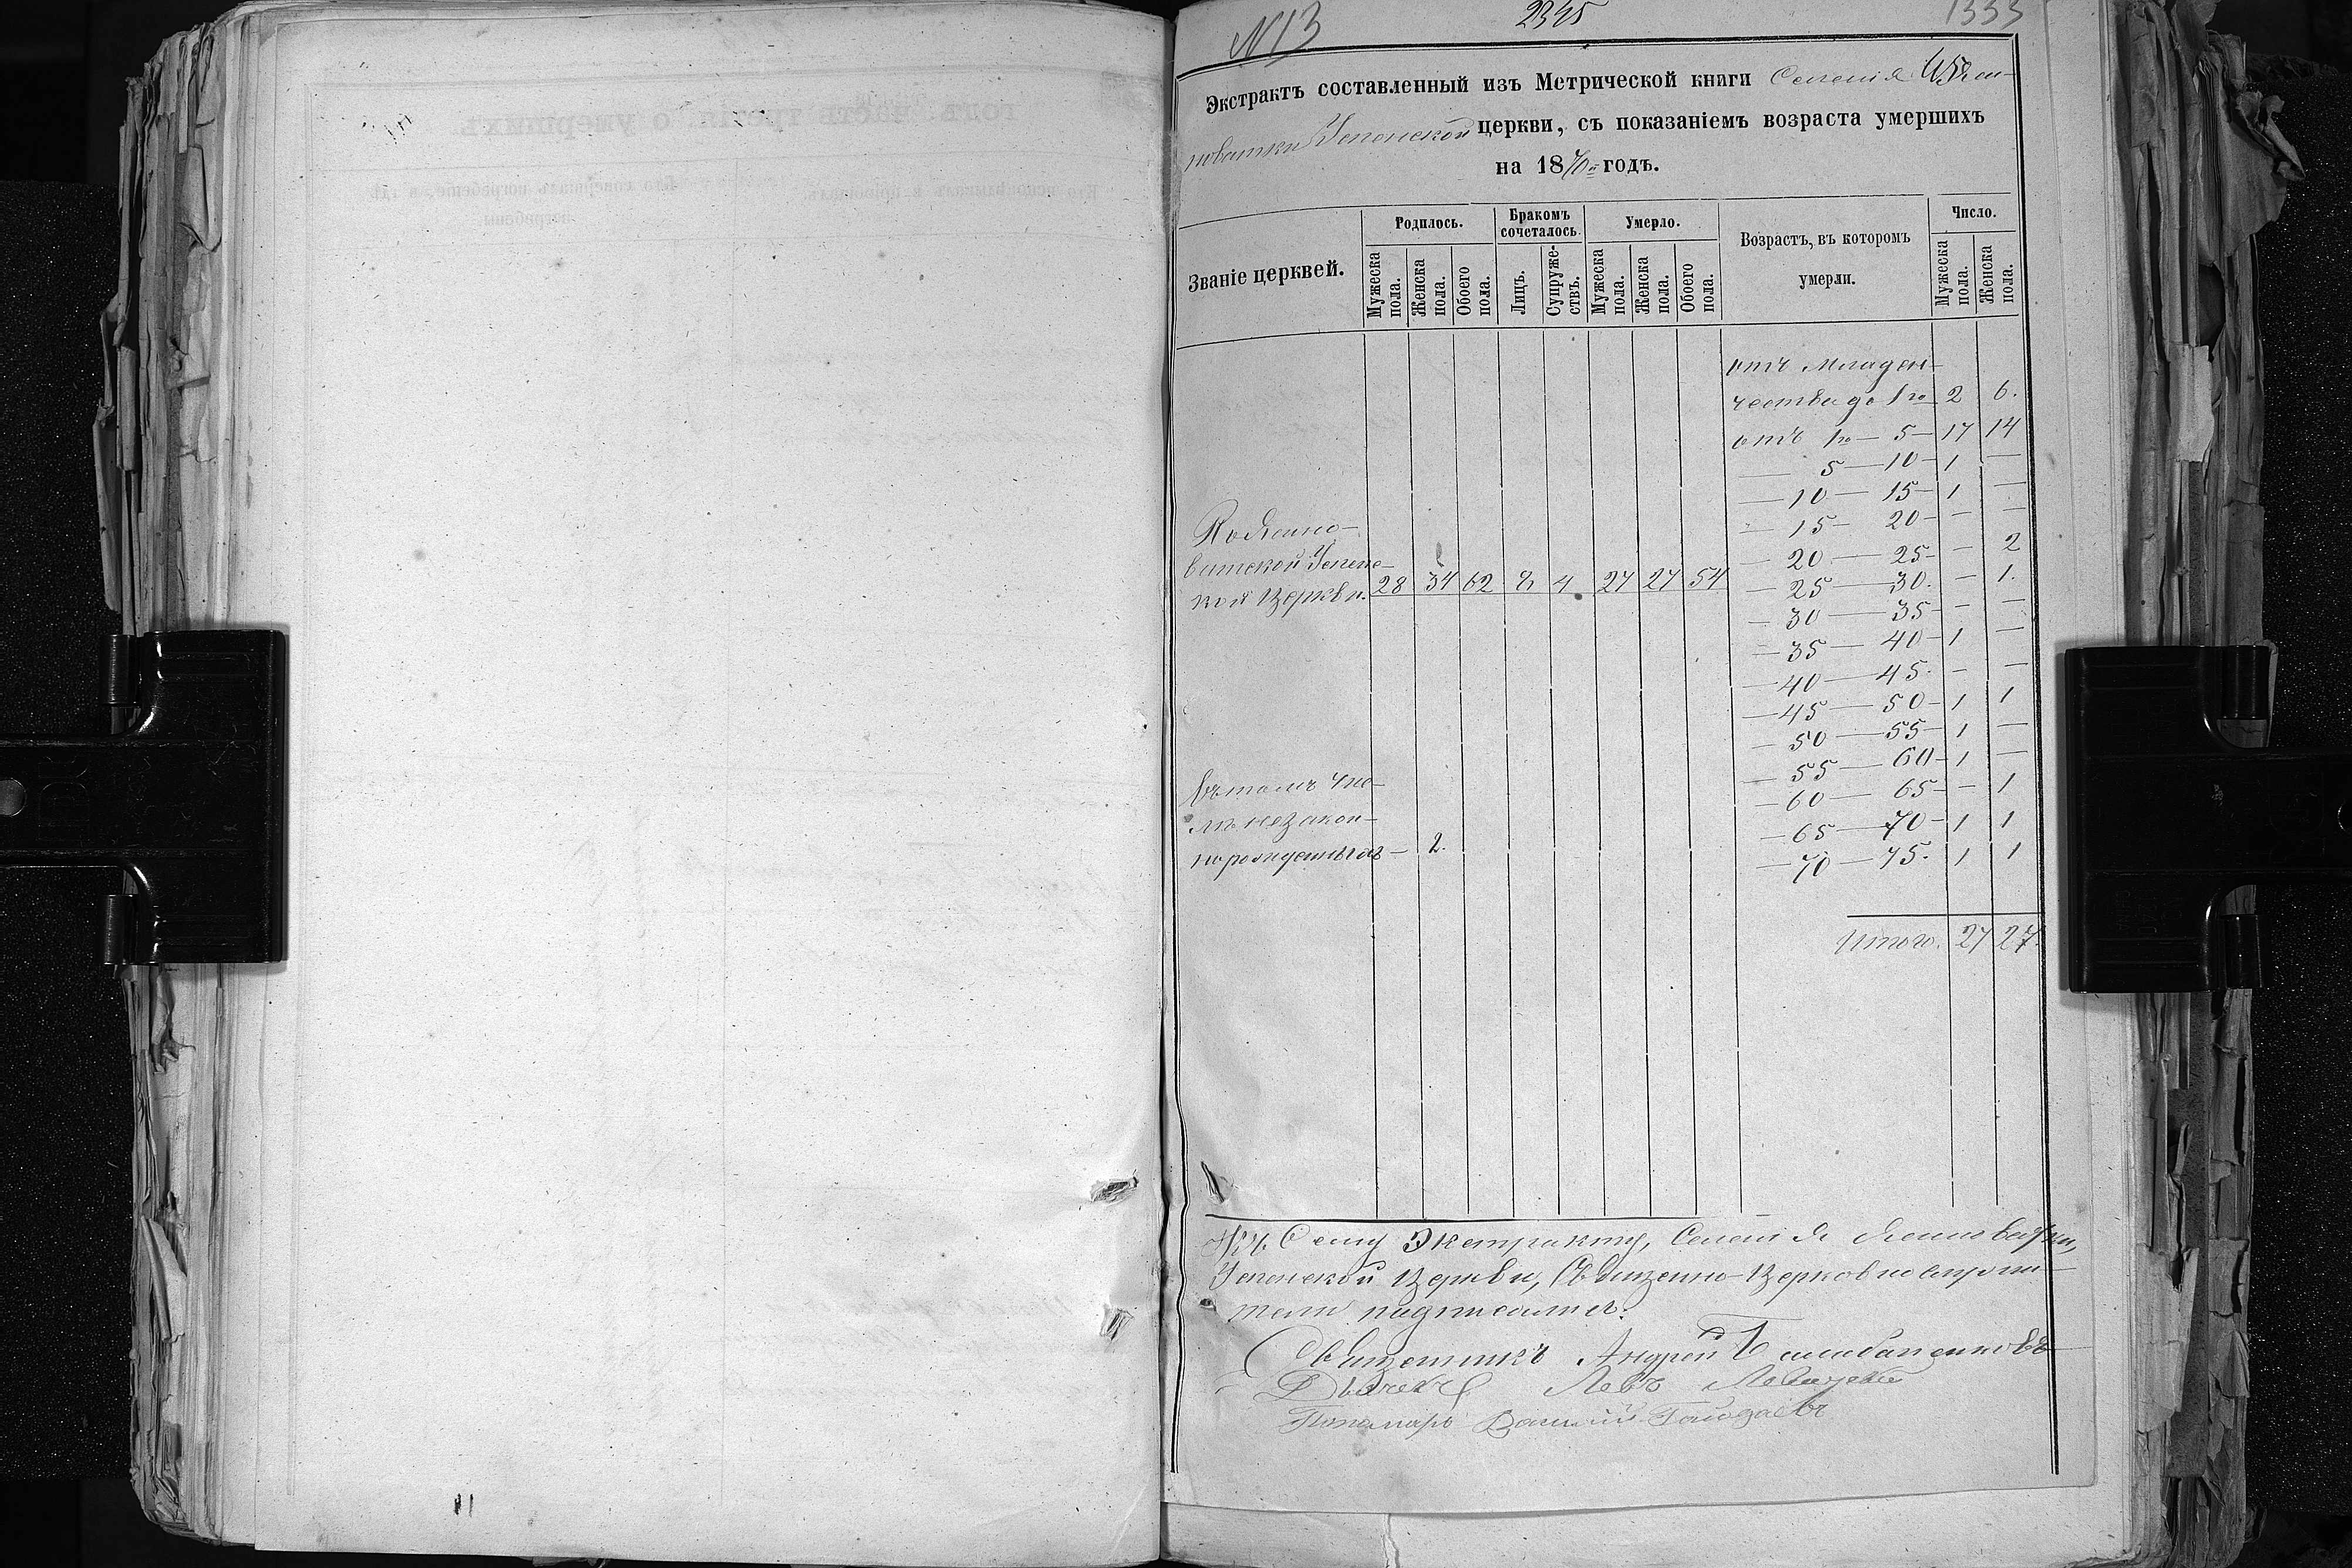 №13
2345
1333
Экстрактъ составленный изъ Метрической книги Селенія Ясен-
новатки Успенской церкви, съ показаніемъ возраста умершихъ
на 1870й годъ.
Званіе церквей.
Родилось.
Бракомъ сочеталось.
Умерло.
Возрастъ, въ которомъ умерли.
Число.
Мужеска пола.
Женска пола.
Обоего пола.
Лицъ.
Супружествъ.
Мужеска пола.
Женска пола.
Обоего пола.
Мужеска пола.
Женска пола.
отъ младен-
чества до 1го 2 6.
отъ 1го — 5 — 17 14
— 5 — 10 — 1 —
— 10 — 15 — 1 —
— 15 — 20 — — —
— 20 — 25 — — 2
— 25 — 30. — 1.
— 30 — 35 — — —
— 35 — 40 — 1 —
— 40 — 45. — —
— 45 — 50 — 1 1
— 50 — 55 — 1 —
— 55 — 60 — 1 —
— 60 — 65 — — 1
— 65 — 70 — 1 1
— 70 — 75. 1 1
Итого. 27 27.
ватской Успенс-
кой Церкви. 28 34 62 8 4 27 27 54
Въ томъ чис-
лѣ незакон-
норожденныхъ — 2.
Къ Сему Экстракту, Селенія Ясиноватки,
Успенской Церкви, Священно-Церковнослужи-
тели подписались:
Священникъ Андрей
Дьячекъ Левъ Левицкій
Пономарь Василій Гайдаевъ